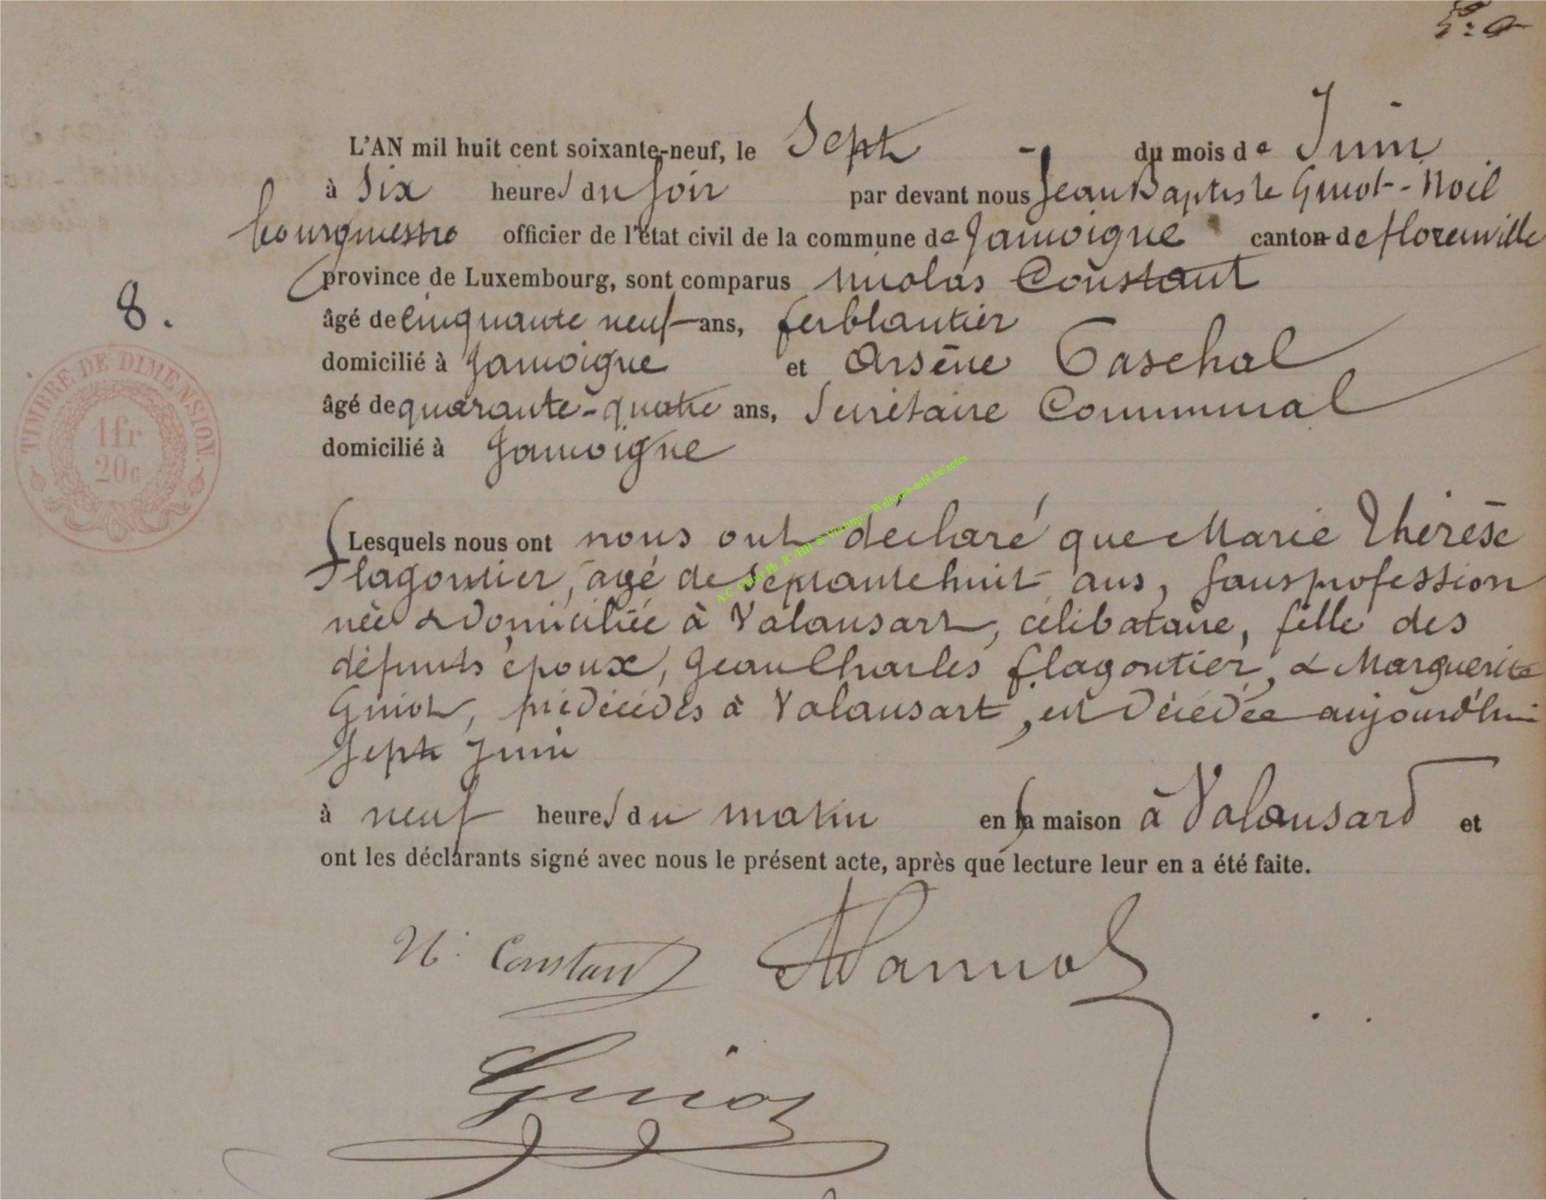 L'AN mil huit cent soixante-neuf, le Sept - du mois de Juin
à Six heures du soir par devant nous Jean Baptiste Guiot-Noël
bourgmestre officier de l'état civil de la commune de Jamoigne canton de florenville
province de Luxembourg, sont comparus Nicolas Constant
8.
âgé de cinquante neuf ans, ferblantier
domicilié à Jamoigne et Arsène Paschal
âgé de quarante-quatre ans, Secrétaire Communal
domicilié à Jamoigne
TIMBRE DE DIMENSION.
1fr
20c
Lesquels nous ont nous ont déclaré que Marie Thérèse
flagontier, agé de septante huit ans, sans profession
née & domiciliée à Valansart, célibataire, fille des
défunts époux, Jean Charles flagontier, & Marguerite
Guiot, prédécédés à Valansart, est décédée aujourd'hui
sept Juin
à neuf heures du matin en sa maison à Valansard et
ont les déclarants signé avec nous le présent acte, après que lecture leur en a été faite.
N. Constant
Guiot